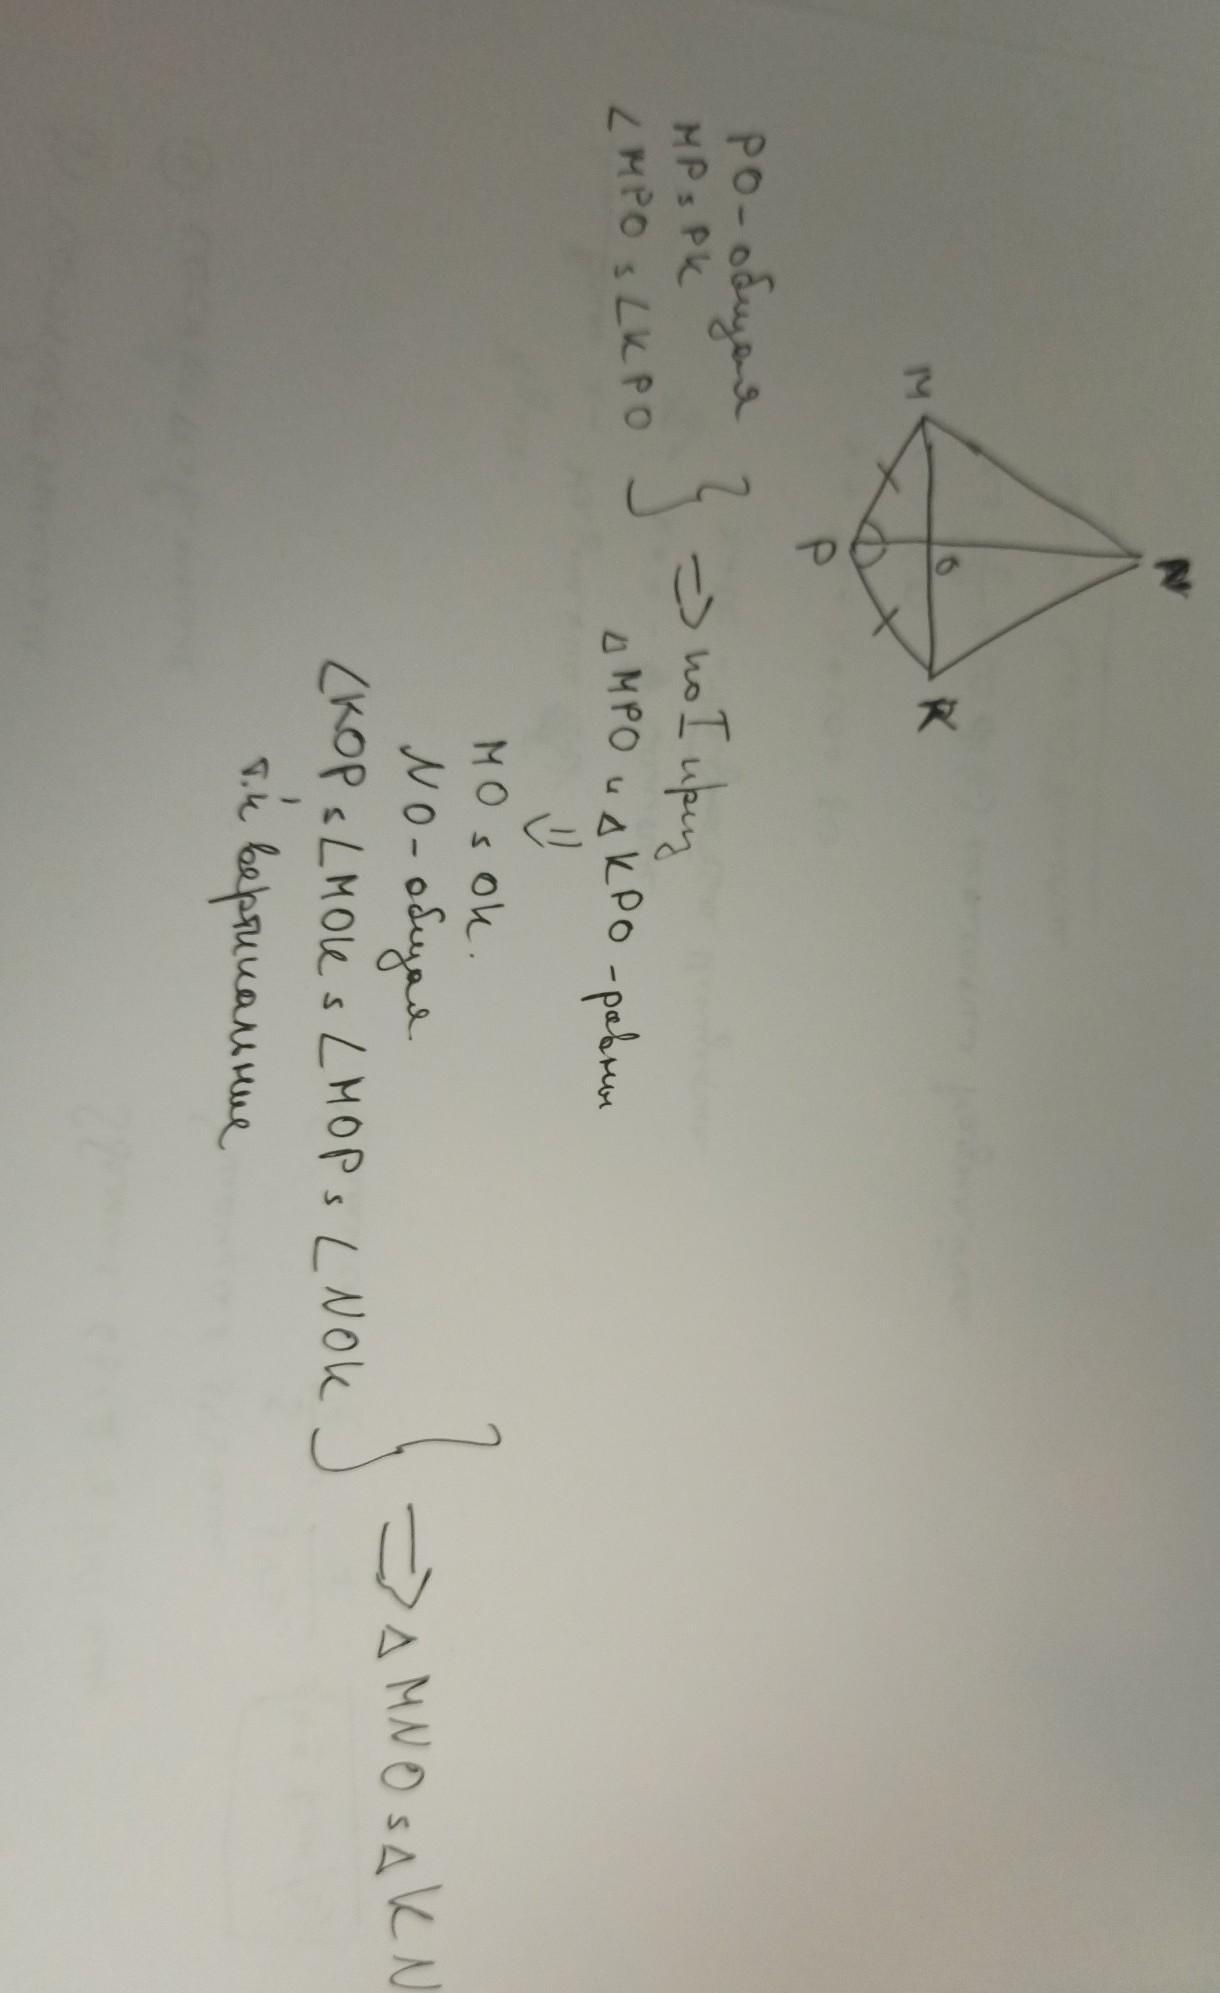 N
M
O
K
P
PO - общая
MP = PK
∠MPO = ∠KPO
⇒ по I приз
ΔMPO и ΔKPO - равны
⇓
MO = OK.
NO - общая
∠KOP = ∠MOK = ∠MOP = ∠NOK
т.к вертикальные
⇒ ΔMNO = ΔKN